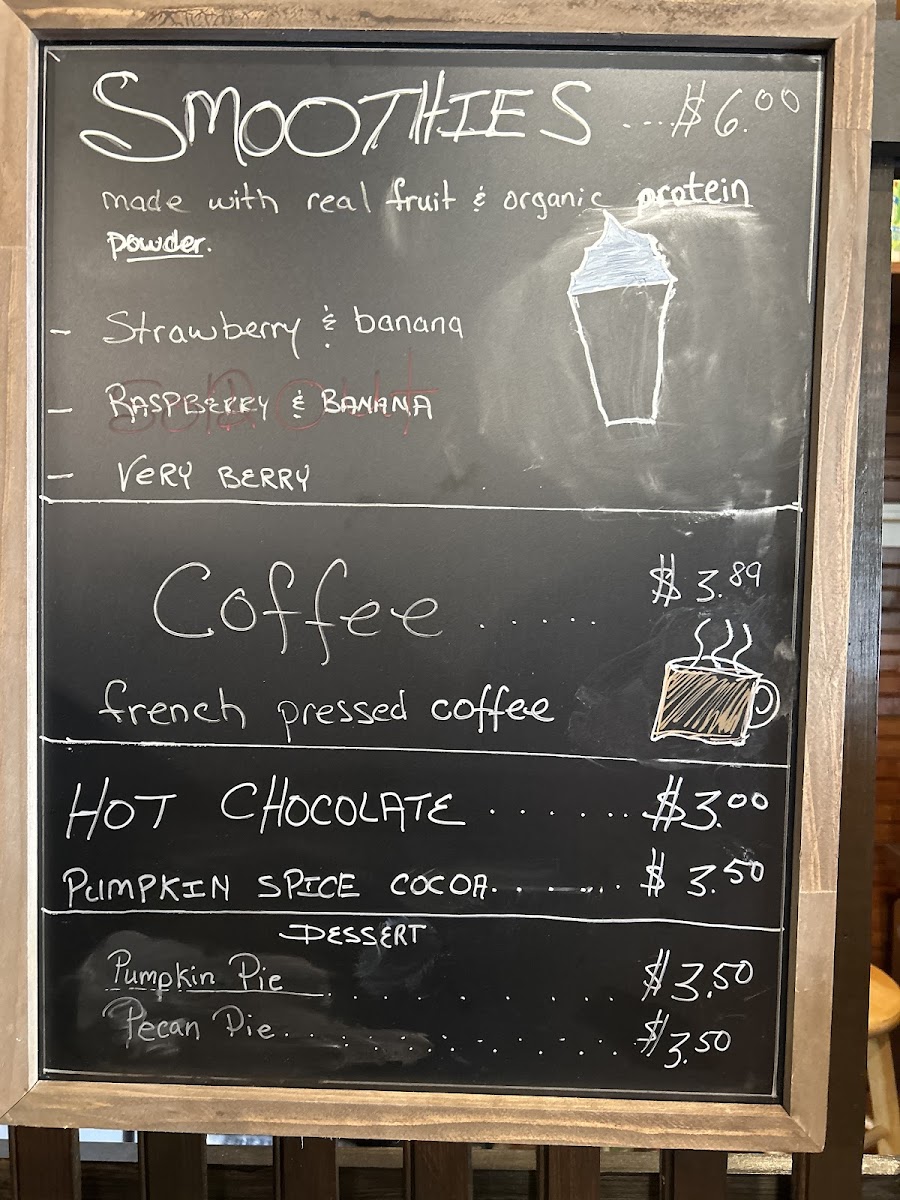 SMOOTHIES ....$6.00
made with real fruit & organic protein
powder.
- Strawberry & banana
- RASPBERRY & BANANA
SOLD OUT
- VERY BERRY
Coffee ...... $3.89
french pressed coffee
HOT CHOCOLATE ....... $3.00
PUMPKIN SPICE COCOA....... $3.50
DESSERT
Pumpkin Pie ......... $3.50
Pecan Pie ........... $3.50